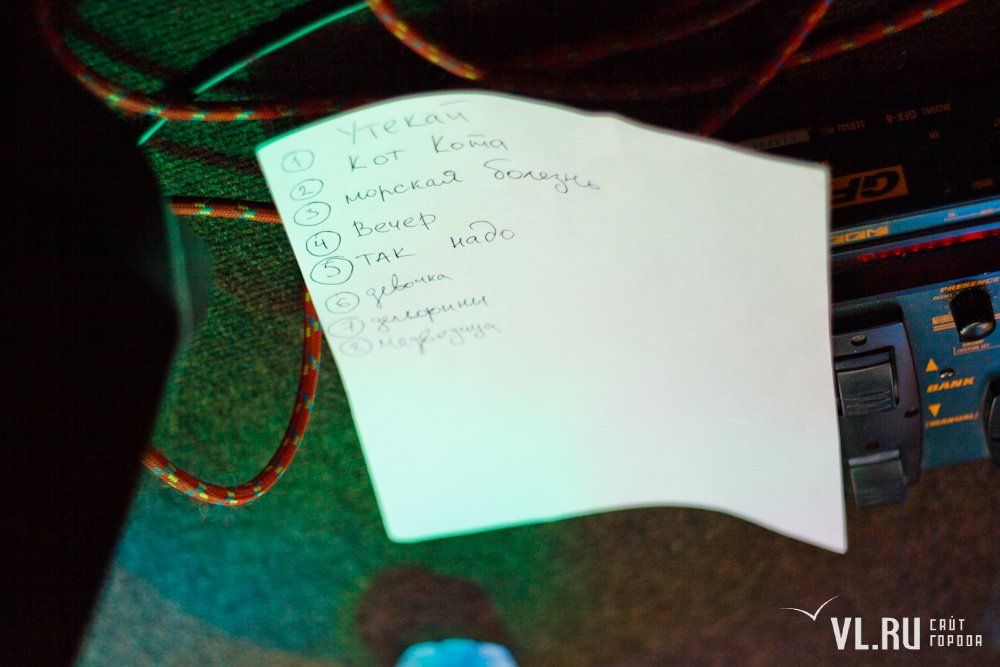 ① Утекай
② Кот Кота
③ морская болезнь
④ Вечер
⑤ ТАК надо
⑥ девочка
⑦ дельфины
⑧ медведица
MODEL GFX-8
SERIAL NO
IN
GFX
PRESENCE
BANK
(MANUAL)
VL.RU САЙТ ГОРОДА